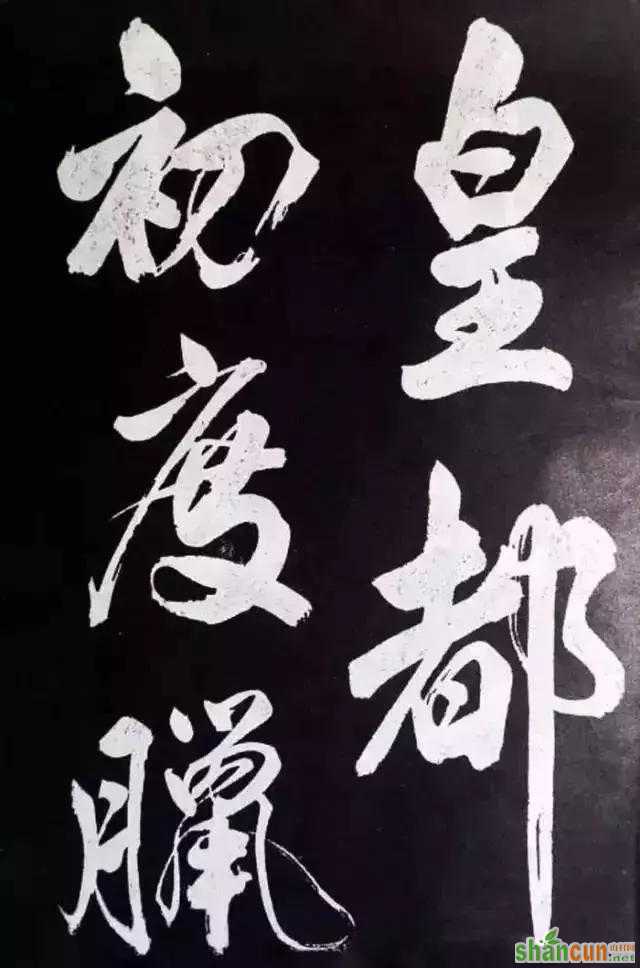 皇都
初度臘
shancun
山村网
.net